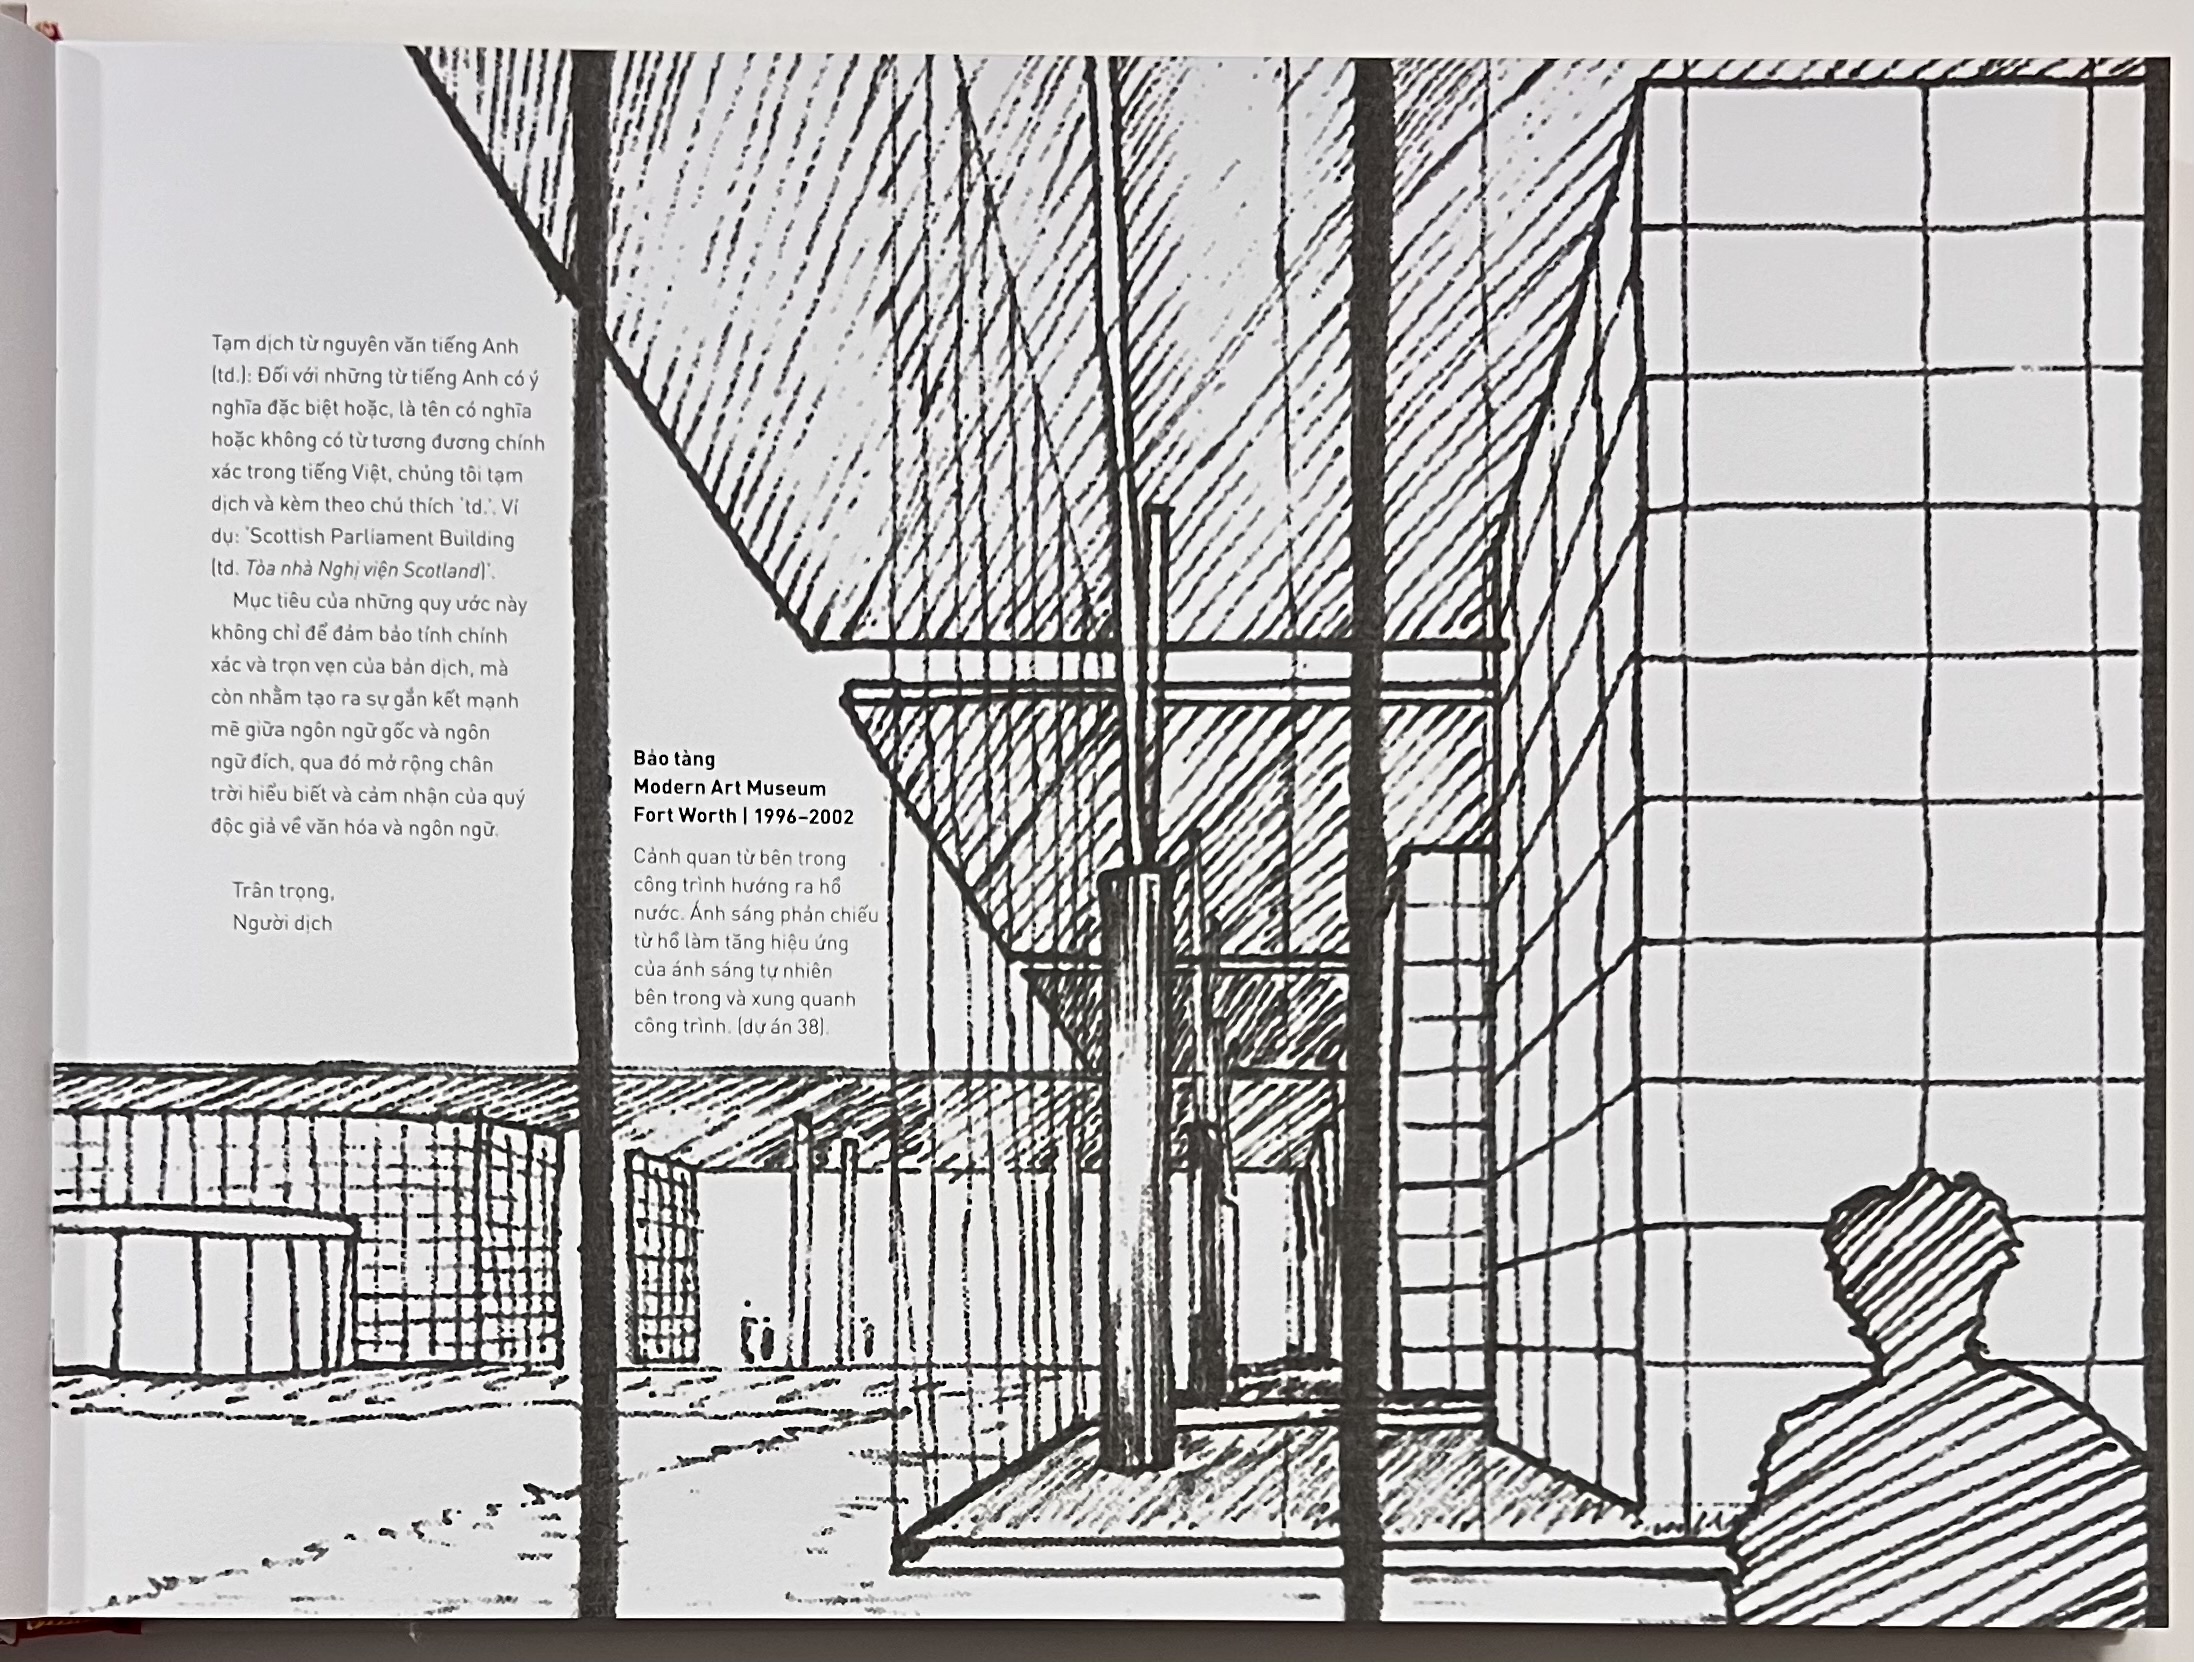 Tạm dịch từ nguyên văn tiếng Anh
(td.): Đối với những từ tiếng Anh có ý
nghĩa đặc biệt hoặc, là tên có nghĩa
hoặc không có từ tương đương chính
xác trong tiếng Việt, chúng tôi tạm
dịch và kèm theo chú thích 'td.'. Ví
dụ: 'Scottish Parliament Building
(td. Tòa nhà Nghị viện Scotland)'.
Mục tiêu của những quy ước này
không chỉ để đảm bảo tính chính
xác và trọn vẹn của bản dịch, mà
còn nhằm tạo ra sự gắn kết mạnh
mẽ giữa ngôn ngữ gốc và ngôn
ngữ đích, qua đó mở rộng chân
trời hiểu biết và cảm nhận của quý
độc giả về văn hóa và ngôn ngữ.
Trân trọng,
Người dịch
Bảo tàng
Modern Art Museum
Fort Worth | 1996–2002
Cảnh quan từ bên trong
công trình hướng ra hồ
nước. Ánh sáng phản chiếu
từ hồ làm tăng hiệu ứng
của ánh sáng tự nhiên
bên trong và xung quanh
công trình. (dự án 38).